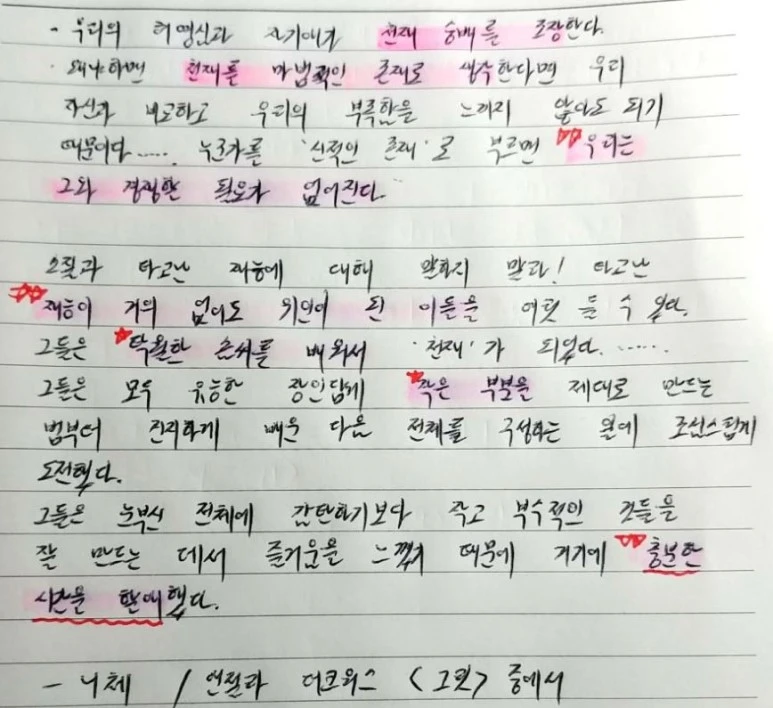 - 우리의 허영심과 자기애가 천재 숭배를 조장한다.
· 왜냐하면 천재를 마법적인 존재로 생각한다면 우리
자신과 비교하고 우리의 부족함을 느끼지 않아도 되기
때문이다..... 누군가를 '신적인 존재'로 부르면 우리는
그와 경쟁할 필요가 없어진다.
소질과 타고난 재능에 대해 말하지 말라! 타고난
재능이 거의 없어도 위인이 된 이들을 여럿 들 수 있다.
그들은 탁월한 솜씨를 배워서 '천재'가 되었다. ......
그들은 모두 유능한 장인답게 작은 부분을 제대로 만드는
법부터 진지하게 배운 다음 전체를 구성하는 일에 조심스럽게
도전했다.
그들은 눈부신 전체에 감탄하기보다 작고 부수적인 것들을
잘 만드는 데서 즐거움을 느꼈기 때문에 거기에 충분한
시간을 할애했다.
- 니체 / 앤절라 더크워스 <그릿> 중에서